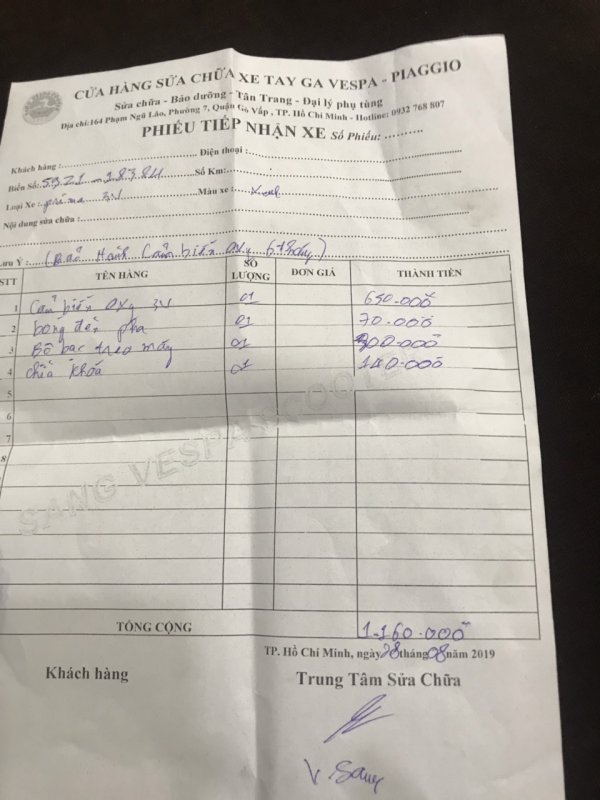 CỬA HÀNG SỬA CHỮA XE TAY GA VESPA - PIAGGIO
Sửa chữa - Bảo dưỡng - Tân Trang - Đại lý phụ tùng
Địa chỉ:164 Phạm Ngũ Lão, Phường 7, Quận Gò Vấp , TP. Hồ Chí Minh - Hotline: 0932 768 807
PHIẾU TIẾP NHẬN XE Số Phiếu: .........
Khách hàng : Điện thoại :
Biển Số: Số Km:
Loại Xe : 3V Màu xe : Xanh
Nội dung sửa chữa :
Lưu Ý : Hành Cảm biến oxy 6 tháng)
STT TÊN HÀNG SỐ LƯỢNG ĐƠN GIÁ THÀNH TIỀN
1 Cảm biến oxy 3V 01 650.000
2 bóng đèn pha 01 70.000
3 Bộ bạc treo máy 01 300.000
4 chìa khóa 01 140.000
5
6
7
8
SANG VESPA SCOOTER
TỔNG CỘNG 1.160.000
TP. Hồ Chí Minh, ngày 28 tháng 08 năm 2019
Khách hàng Trung Tâm Sửa Chữa
V. Sang